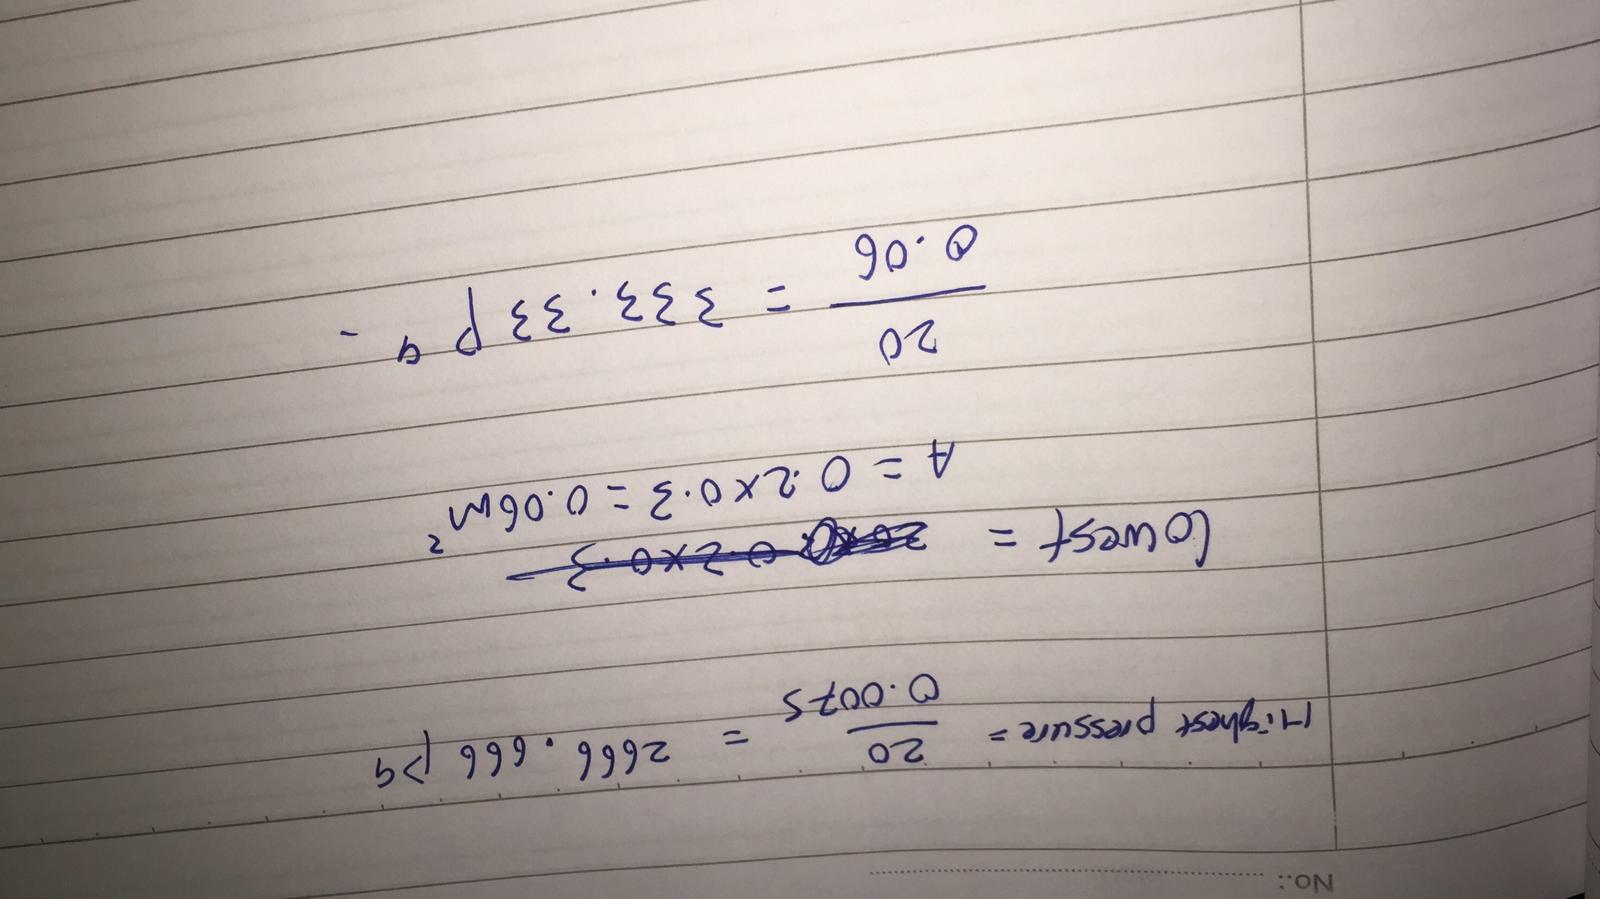 No.:
Highest pressure = 20 / 0.0075 = 2666.666 Pa
lowest = 0.2x0.3
A = 0.2x0.3 = 0.06m²
20 / 0.06 = 333.33 Pa.